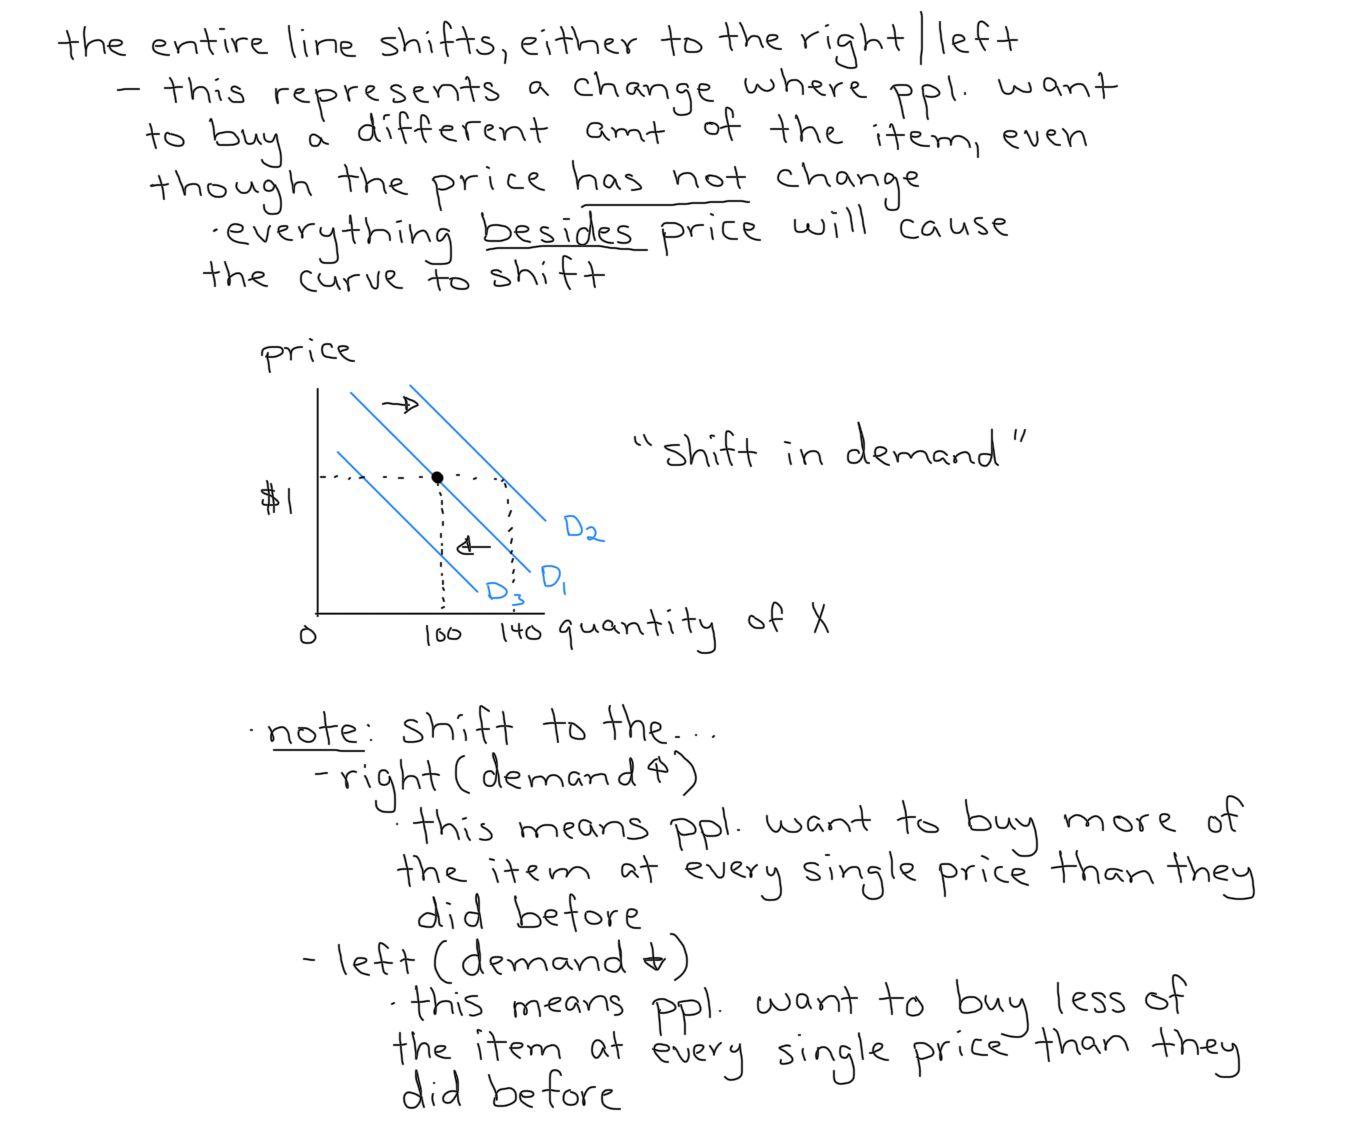 the entire line shifts, either to the right/left
- this represents a change where ppl. want
to buy a different amt of the item, even
though the price has not change
·everything besides price will cause
the curve to shift
price
"shift in demand"
$1
D2
D1
D3
0 100 140 quantity of X
·note: shift to the...
-right (demand ↑)
·this means ppl. want to buy more of
the item at every single price than they
did before
- left (demand ↓)
·this means ppl. want to buy less of
the item at every single price than they
did before